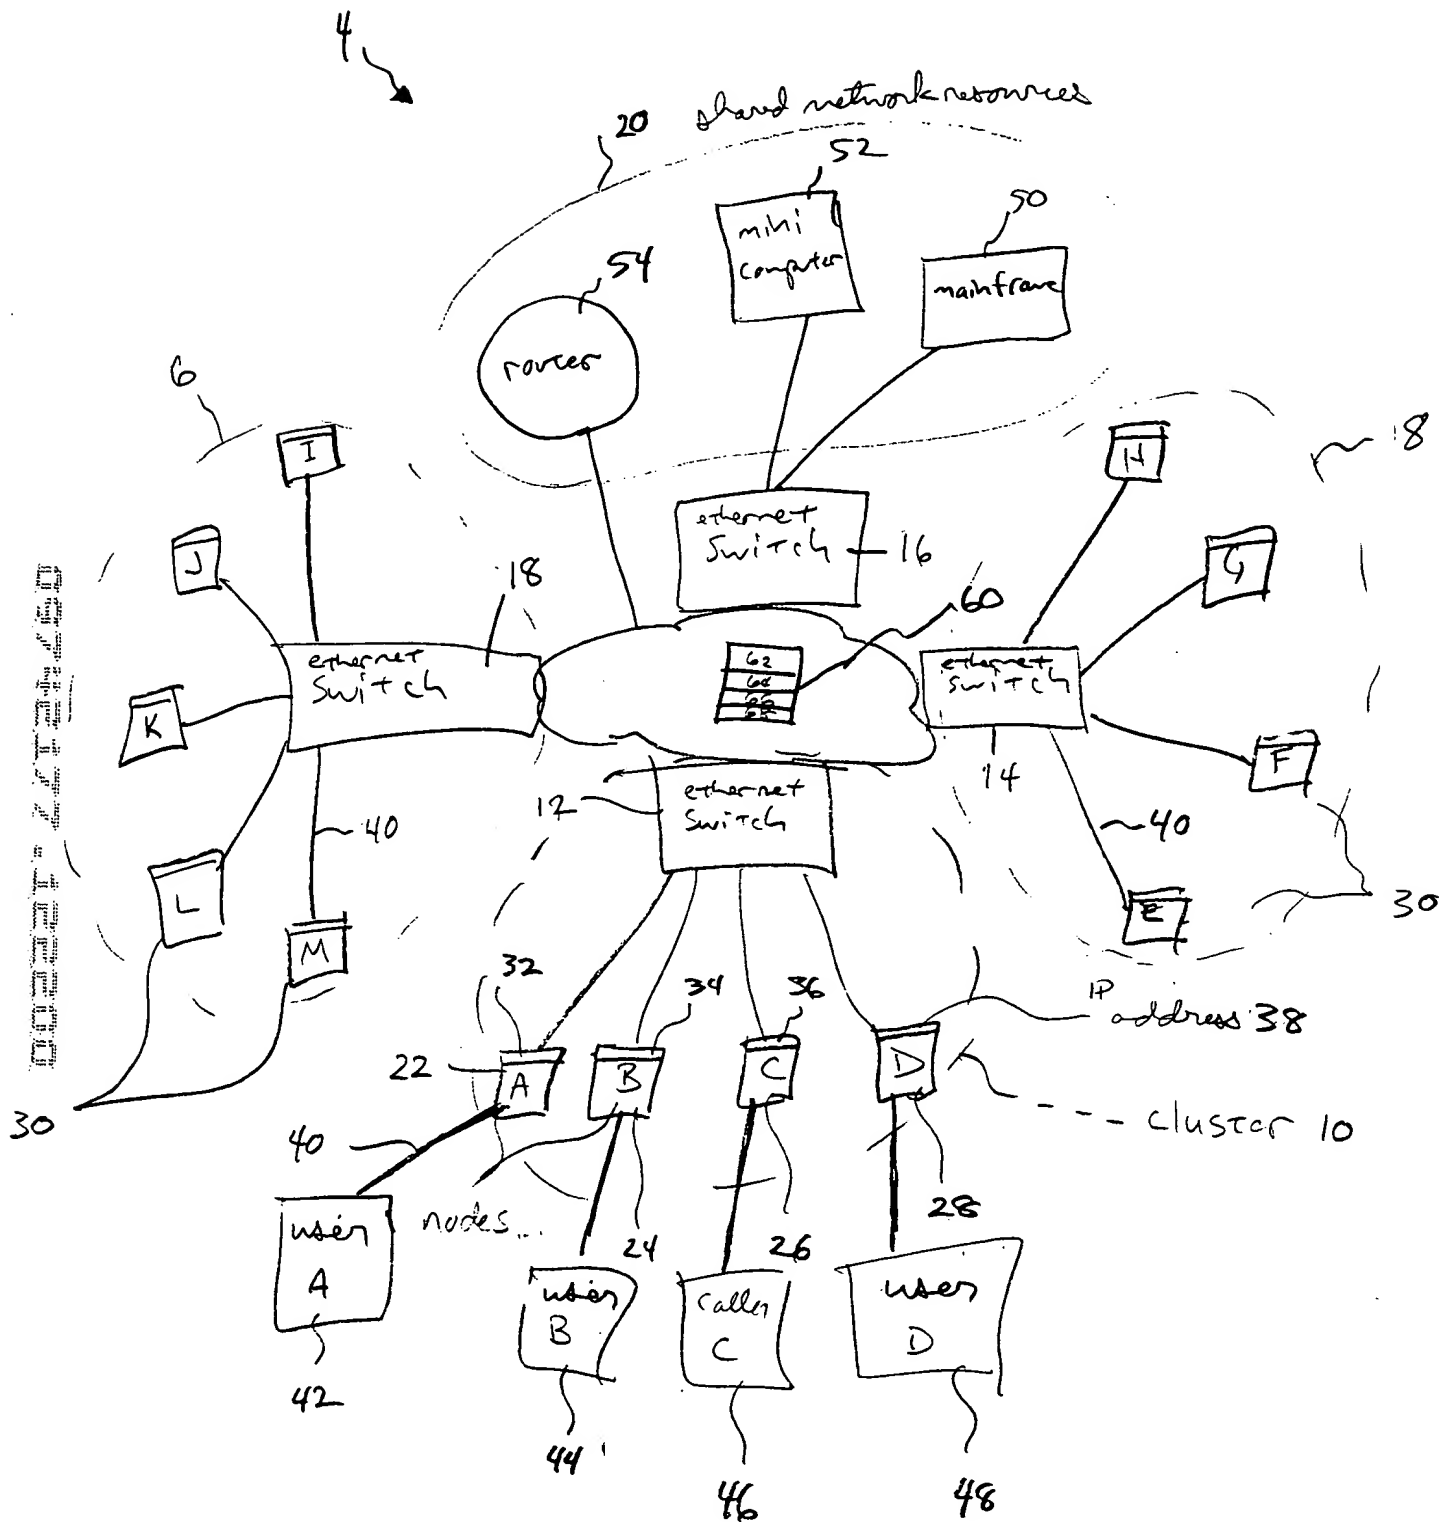 4
20 shared network resources
52
mini
computer
50
mainframe
54
router
6
I
H
8
J
G
ethernet
switch
16
18
60
62
64
66
ethernet
switch
ethernet
switch
K
F
14
12
ethernet
switch
40
40
L
M
E
30
32
34
36
IP
address 38
22
A
B
C
D
30
40
cluster 10
nodes...
24
26
28
user
A
user
B
caller
C
user
D
42
44
46
48
09742177.122200